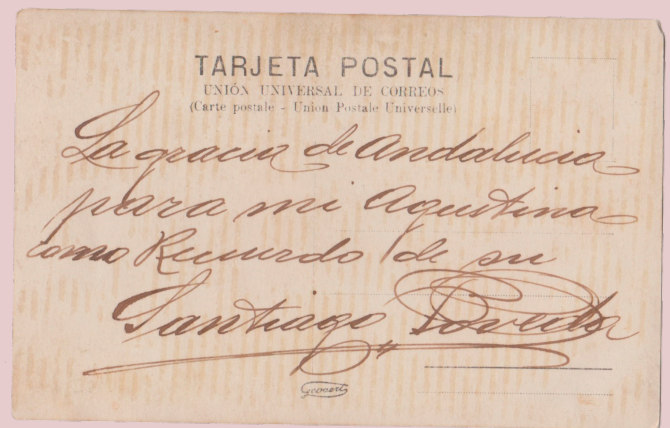 TARJETA POSTAL
UNIÓN UNIVERSAL DE CORREOS
(Carte postale - Union Postale Universelle)
La gracia de Andalucia
para mi Agustina
como Recuerdo de su
Santiago